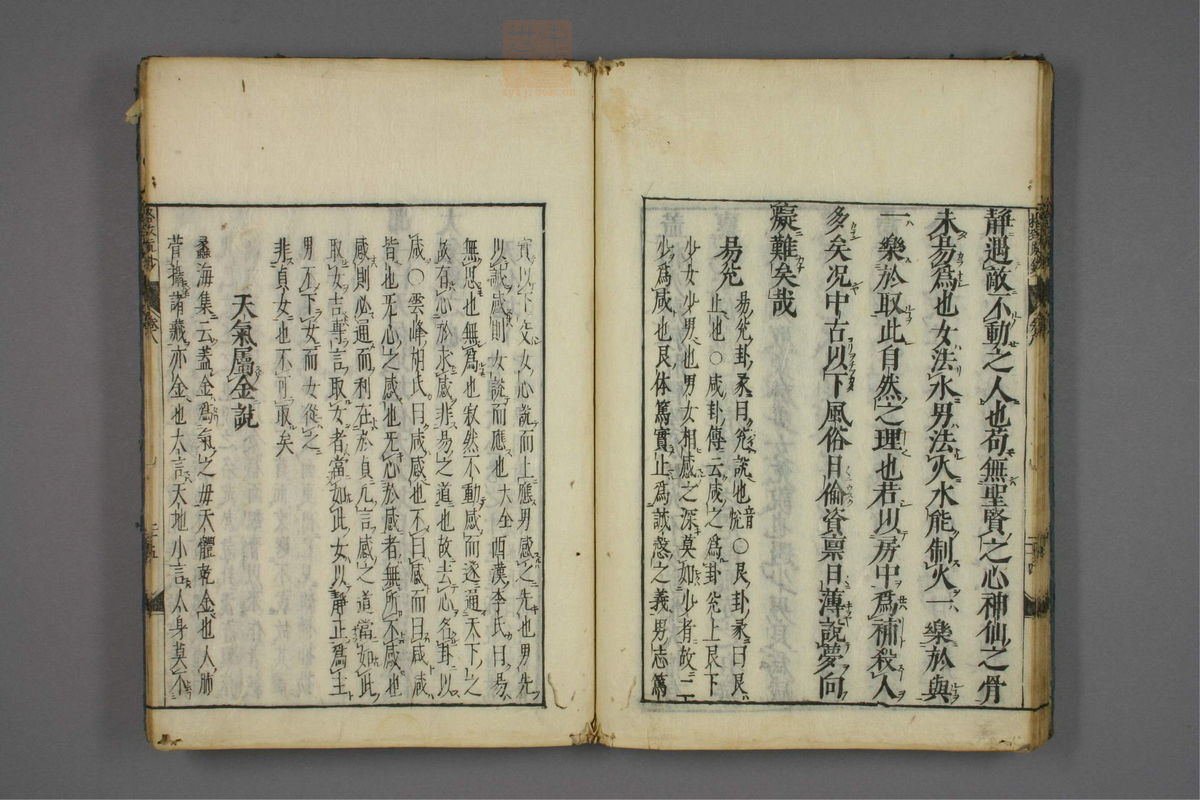 靜遇敵不動之人也苟無聖賢之心神仙之骨
未易爲也女法水男法火水能制火一樂於與
一樂於取此自然之理也若以房中爲補殺人
多矣况中古以下風俗日偷資禀日薄說夢向
癡難矣哉
易兊
易兊卦彖曰兊說也音悅○艮卦彖曰艮
止也○咸卦傳云咸之爲卦兊上艮下
少女少男也男女相感之深莫如少者故二
少爲咸也艮体篤實止爲誠慤之義男志篤
實以下交女心說而上應男感之先也男先
以誠感則女說而應也大全西漢李氏曰易
無思也無爲也寂然不動感而遂通天下之
故有心於求感非易之道也故去心名卦以
咸○雲峰胡氏曰咸感也不曰感而曰咸咸
皆也无心之感也无心於感者無所不感也
感則必通而利在於貞凢言感之道當如此
取女吉專言取女者當如此女以靜正爲主
男不下女而女從之
非貞女也不可取矣
天氣屬金說
蠡海集云蓋金爲氣之母天體乾金也人肺
背攝諸藏亦金也大言天地小言人身莫不